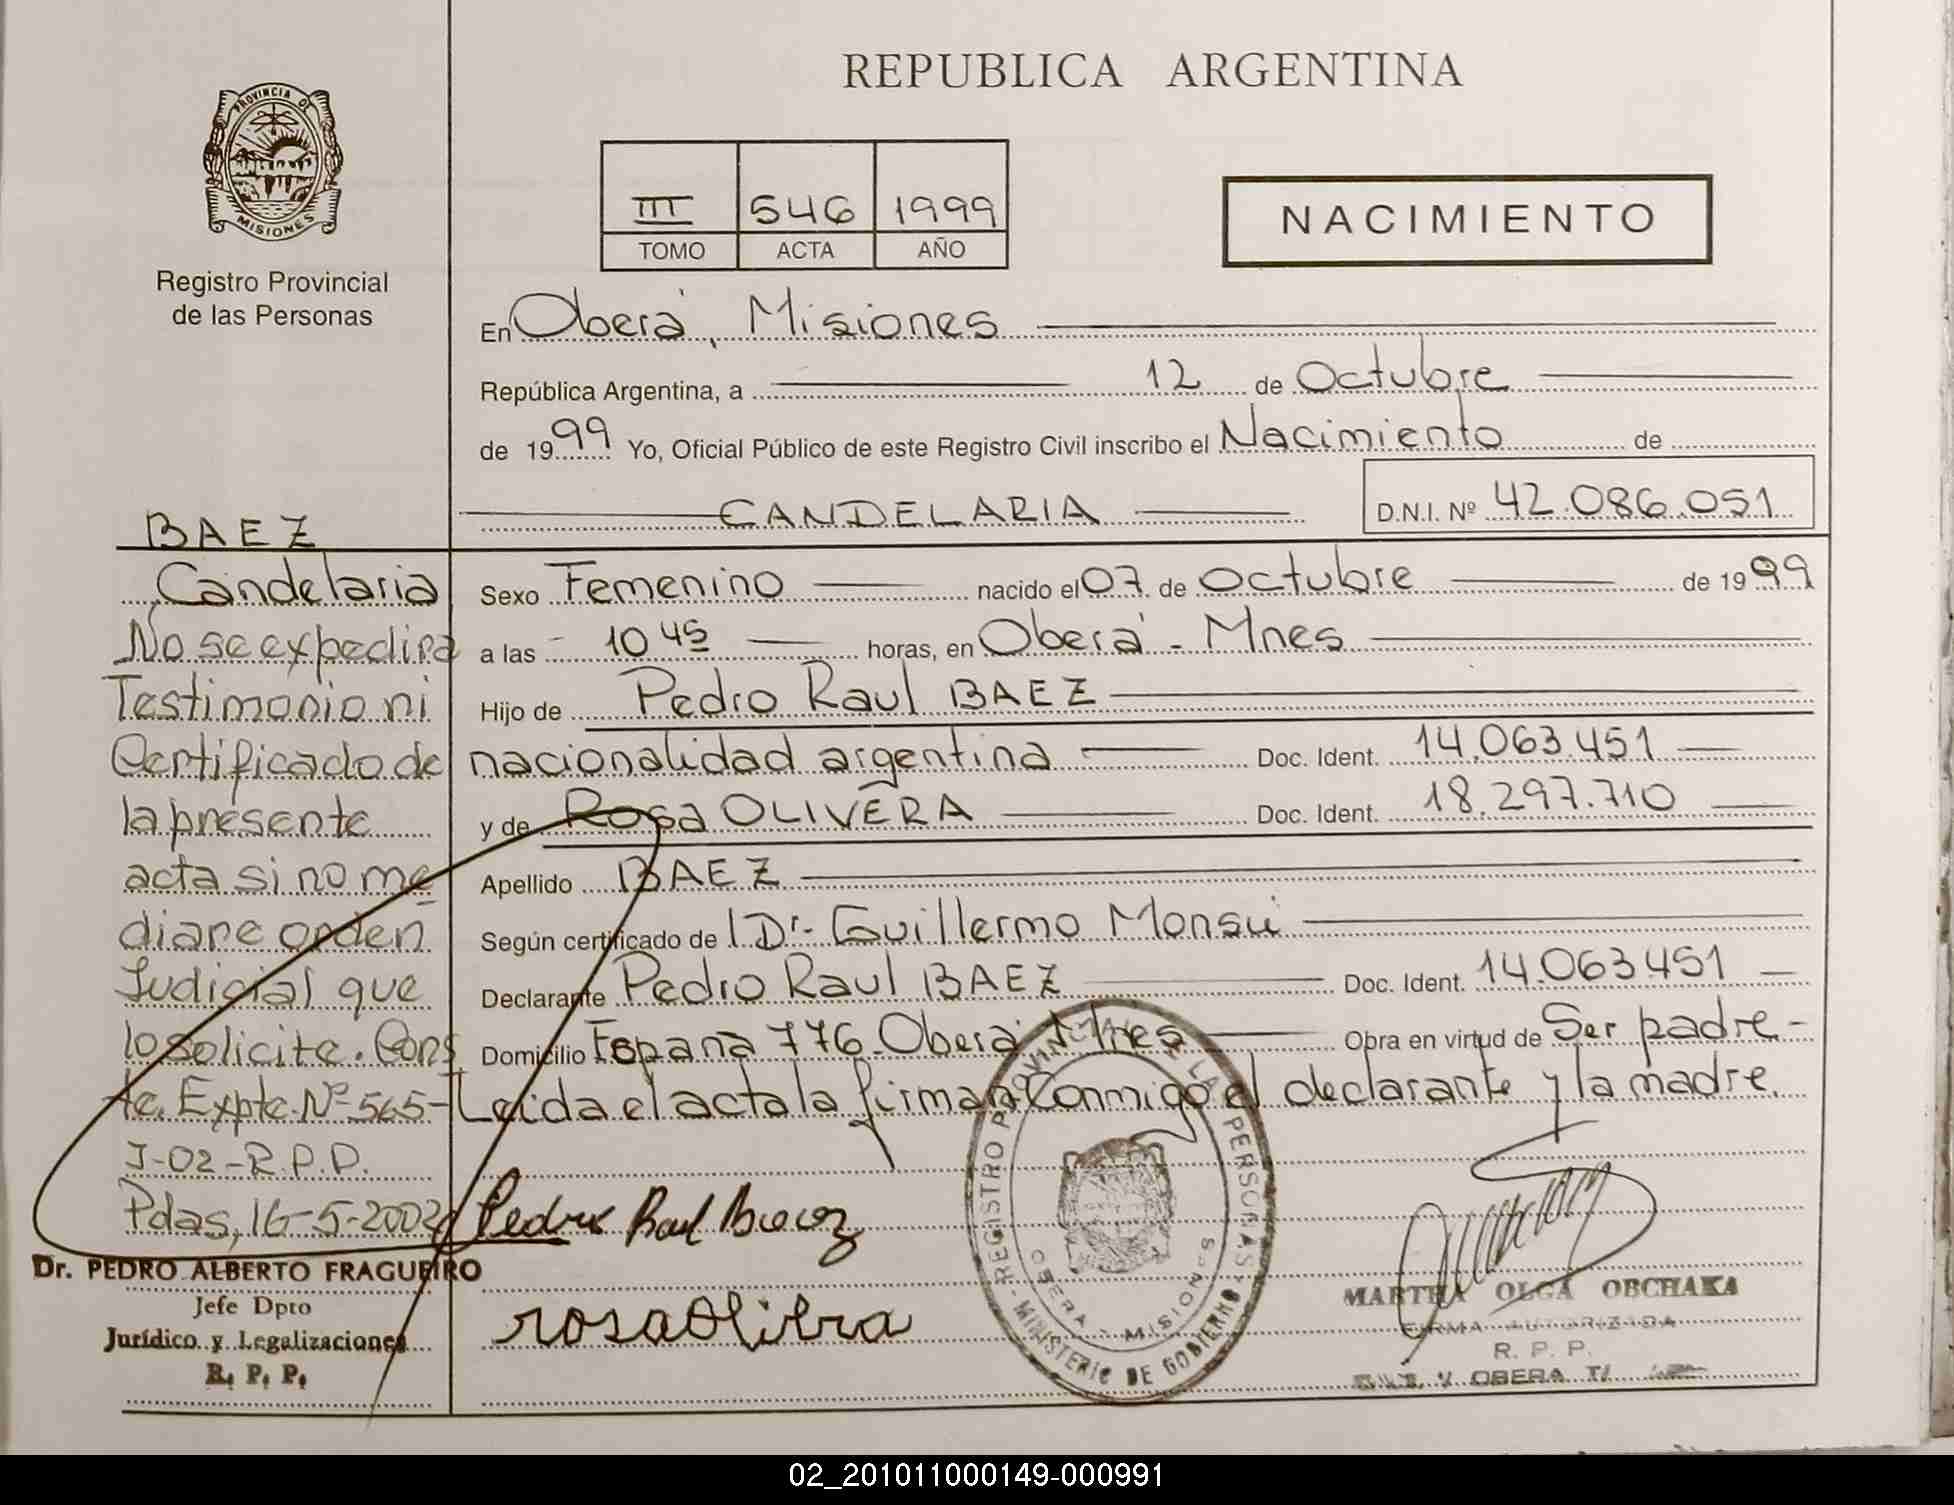 REPUBLICA ARGENTINA
PROVINCIA DE
MISIONES
Registro Provincial
de las Personas
III 546 1999
TOMO ACTA AÑO
NACIMIENTO
En Oberá, Misiones
República Argentina, a 12 de Octubre
de 1999 Yo, Oficial Público de este Registro Civil inscribo el Nacimiento de
CANDELARIA D.N.I. Nº 42.086.051
Sexo Femenino nacido el 07 de Octubre de 1999
a las 10 45 horas, en Oberá - Mnes
Hijo de Pedro Raul BAEZ
nacionalidad argentina Doc. Ident. 14.063.451
y de Rosa OLIVERA Doc. Ident. 18.297.710
Apellido BAEZ
Según certificado de Dr. Guillermo Monsú
Declarante Pedro Raul BAEZ Doc. Ident. 14.063451
Domicilio España 776 Oberá Mnes Obra en virtud de Ser padre-
Leida el acta la firman Conmigo el declarante y la madre.
Pedro Raul Baez
rosa Olibra
BAEZ
Candelaria
No se expedira
Testimonio ni
Certificado de
la presente
acta si no me
diare orden
Judicial que
lo solicite. Cons
te. Expte. Nº 565-
J-02-R.P.P.
Pdas, 16-5-2002
Dr. PEDRO ALBERTO FRAGUEIRO
Jefe Dpto
Jurídico y Legalizaciones
R. P. P.
REGISTRO PROVINCIAL DE LAS PERSONAS - MINISTERIO DE GOBIERNO
OBERA - MISIONES
MARTHA OLGA OBCHAKA
FIRMA AUTORIZADA
R. P. P.
OBERA
02_201011000149-000991